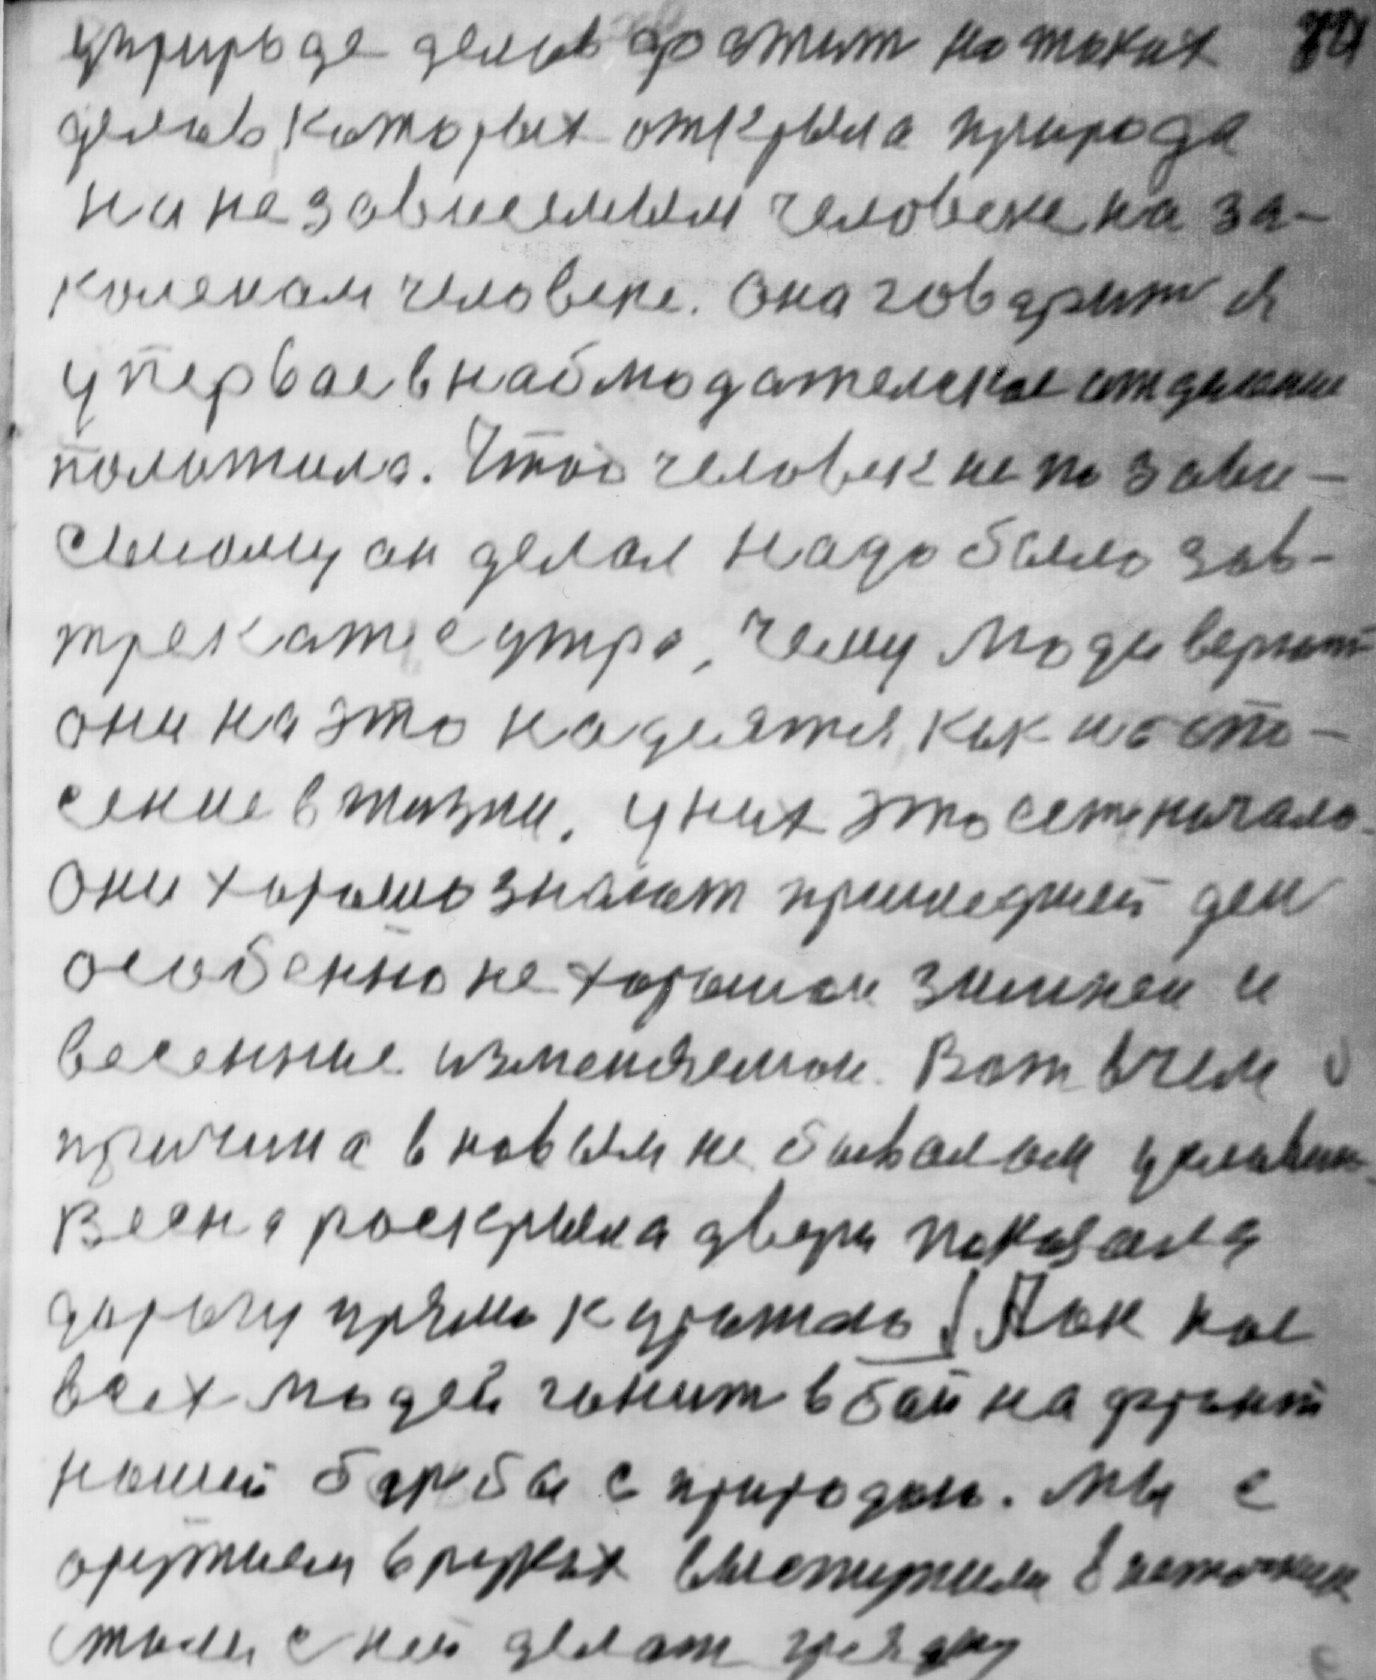 уприроде делов дражит на таких
делов, каторых открыла природа
на независемым человеке на за-
коленам человеке. Она говарит я
у первое в наблюдателское отделение
положила. Что человек не по зави-
симому он делал надо было зав-
трекать с утра, чему люди верют
они на это надеятся, как
сение в жизни. у них это есть начало.
Они хорошо знают пришедшей ден
особенно не хорошои зимнеи и
весенние изменяемои. Вот в чем
причина в новым не бывалои условии.
Весна роскрыла двери показала
дорогу прямо к урожаю Так кое
всех людей гонит в бой на фронт
нашей барбы с природаю. Мы с
оружием в руках выступили в
стали с ней делат грядку